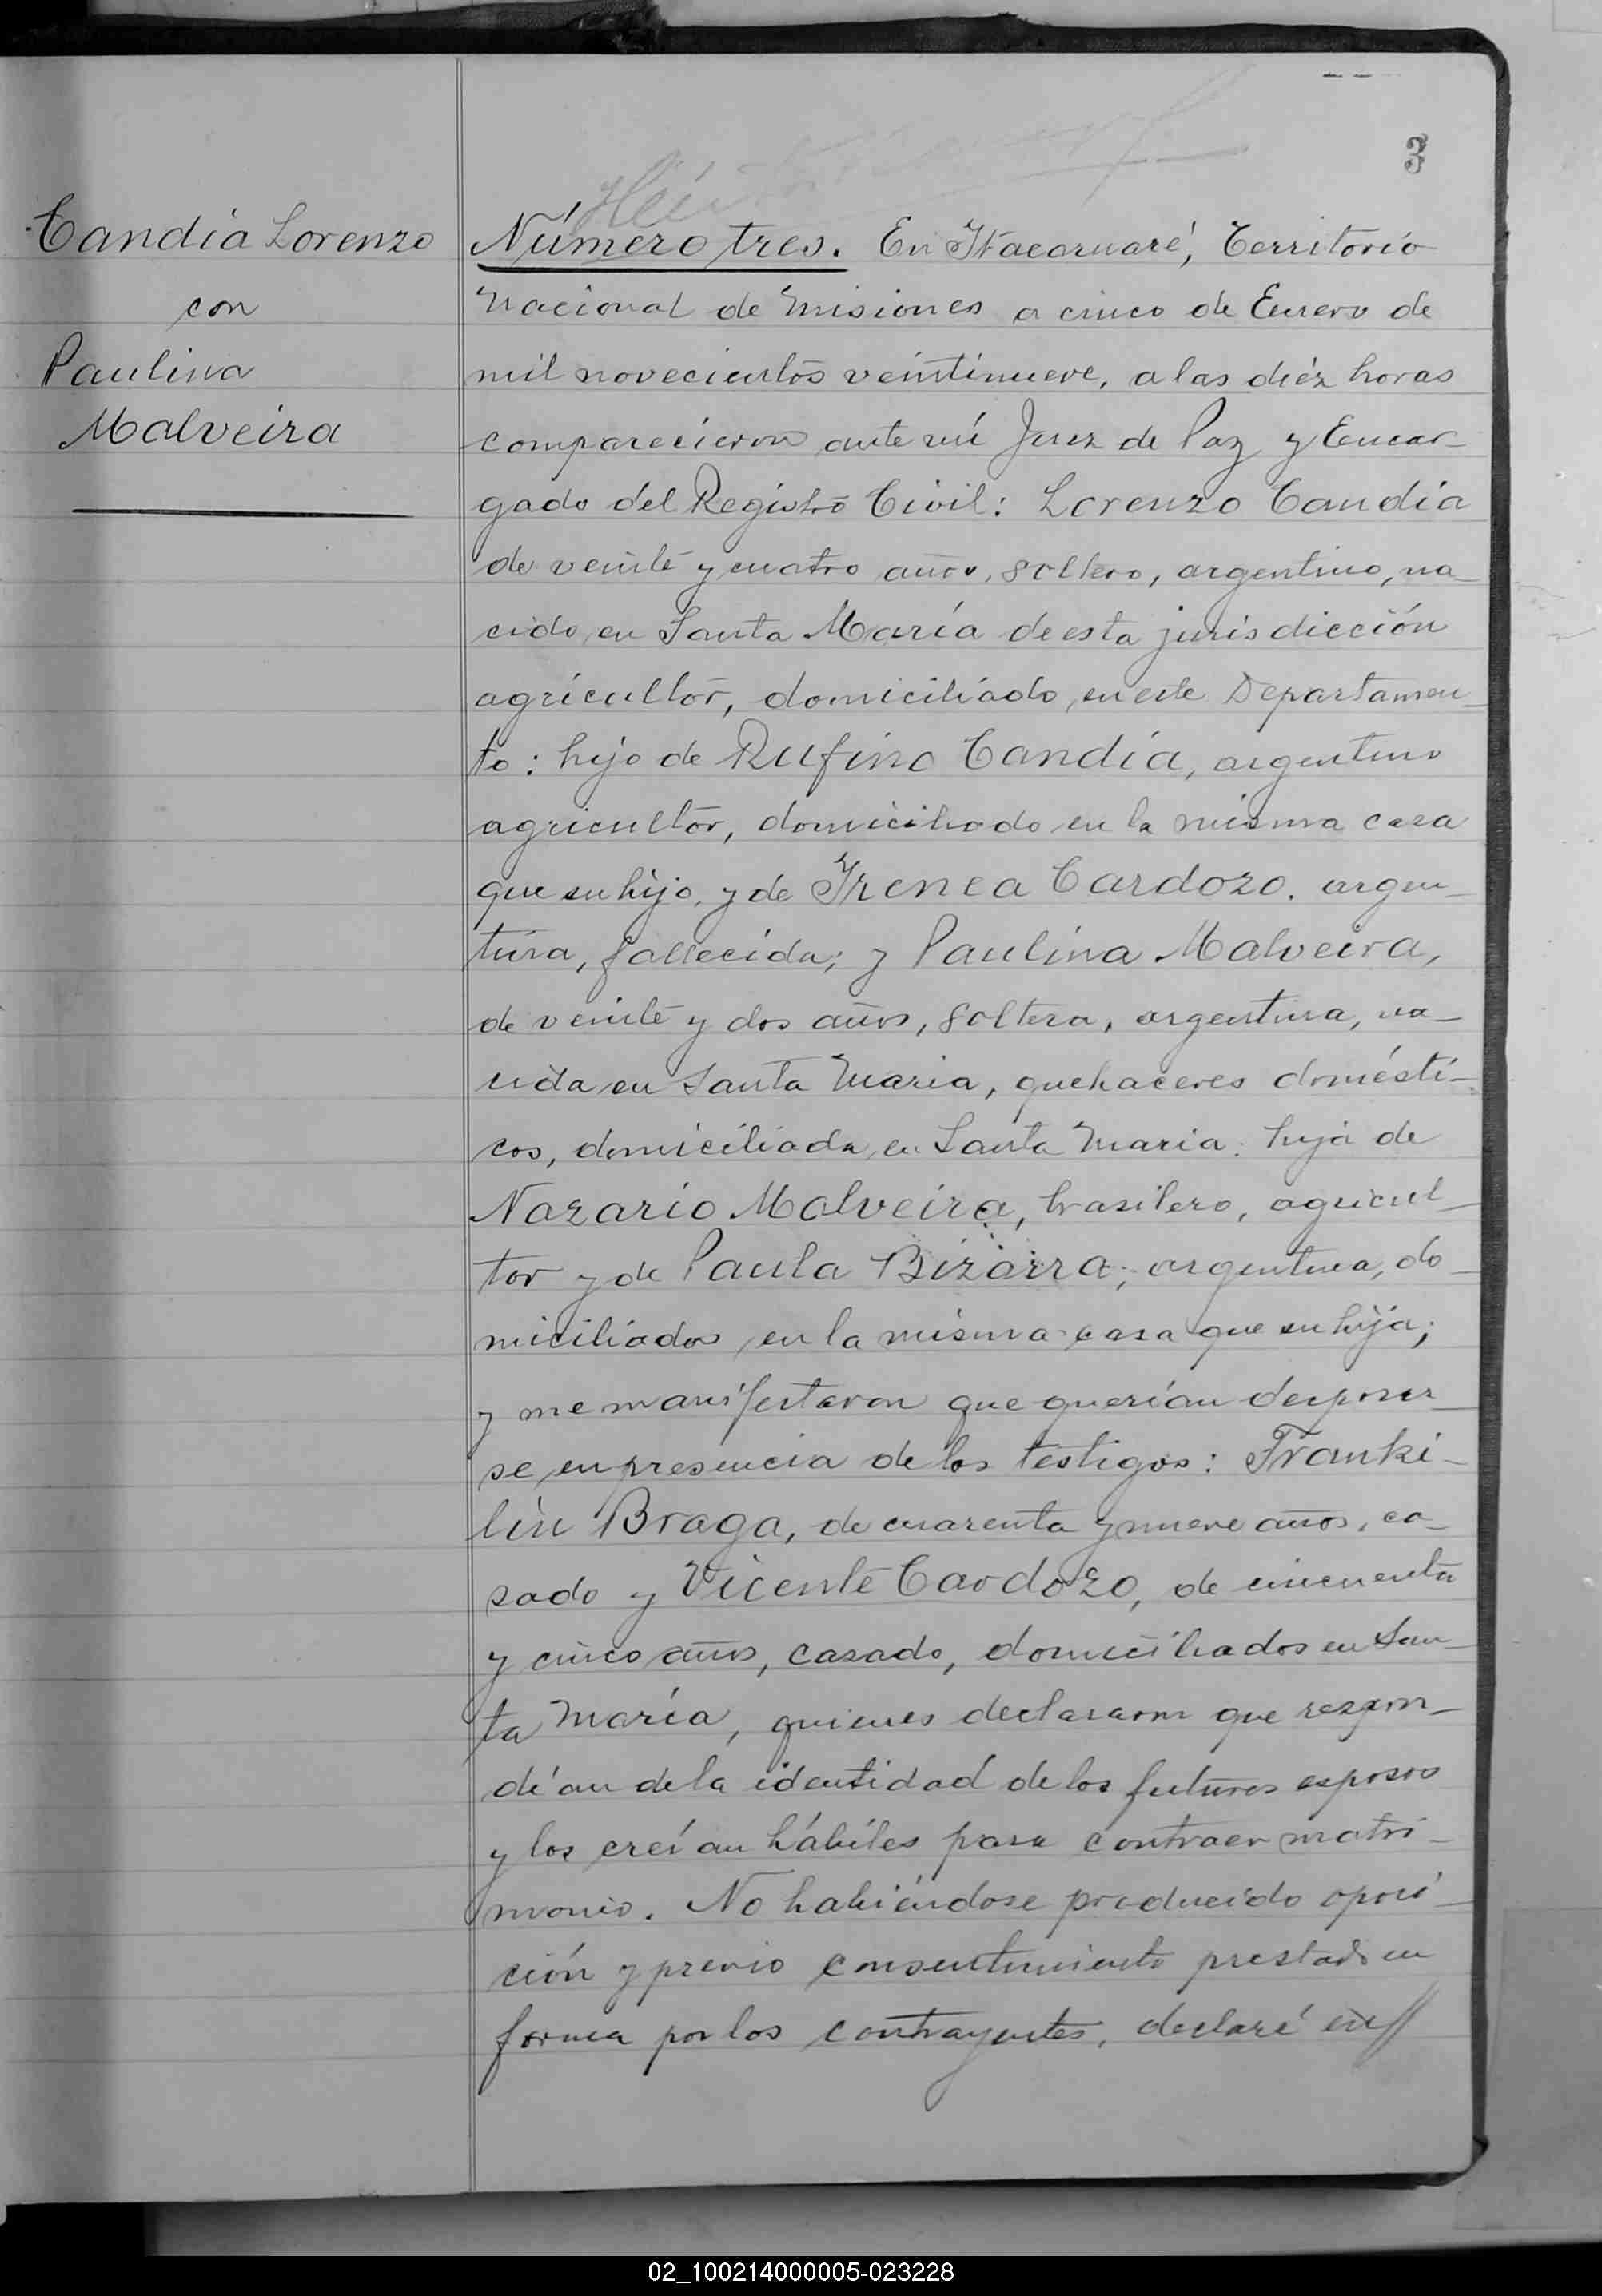 3
Candia Lorenzo
con
Paulina
Malveira
Número tres. En Itacaruaré, Territorio
Nacional de Misiones a cinco de Enero de
mil novecientos veintinueve, a las diéz horas
comparecieron ante mí Juez de Paz y Encar-
gado del Registro Civil: Lorenzo Candia
de veinte y cuatro años, soltero, argentino, na-
cido en Santa María de esta jurisdicción
agricultor, domiciliado en este Departamen-
to: hijo de Rufino Candia, argentino
agricultor, domiciliado en la misma casa
que su hijo, y de Irenea Cardozo. argen-
tina, fallecida; y Paulina Malveira,
de veinte y dos años, soltera, argentina, na-
cida en Santa Maria, quehaceres domésti-
cos, domiciliada en Santa Maria: hija de
Nazario Malveira, brasilero, agricul-
tor y de Paula Bizarra; argentina, do-
miciliados en la misma casa que su hija;
y me manifestaron que querían desposar-
se en presencia de los testigos: Franki-
lín Braga, de cuarenta y nueve años, ca-
sado y Vicente Cardozo, de cincuenta
y cinco años, casado, domiciliados en San-
ta María, quienes declararon que respon-
dían de la identidad de los futuros esposos
y los creían hábiles para contraer matri-
monio. No habiéndose producido oposi-
ción y previo consentimiento prestado en
forma por los contrayentes, declaré en//
02_100214000005-023228